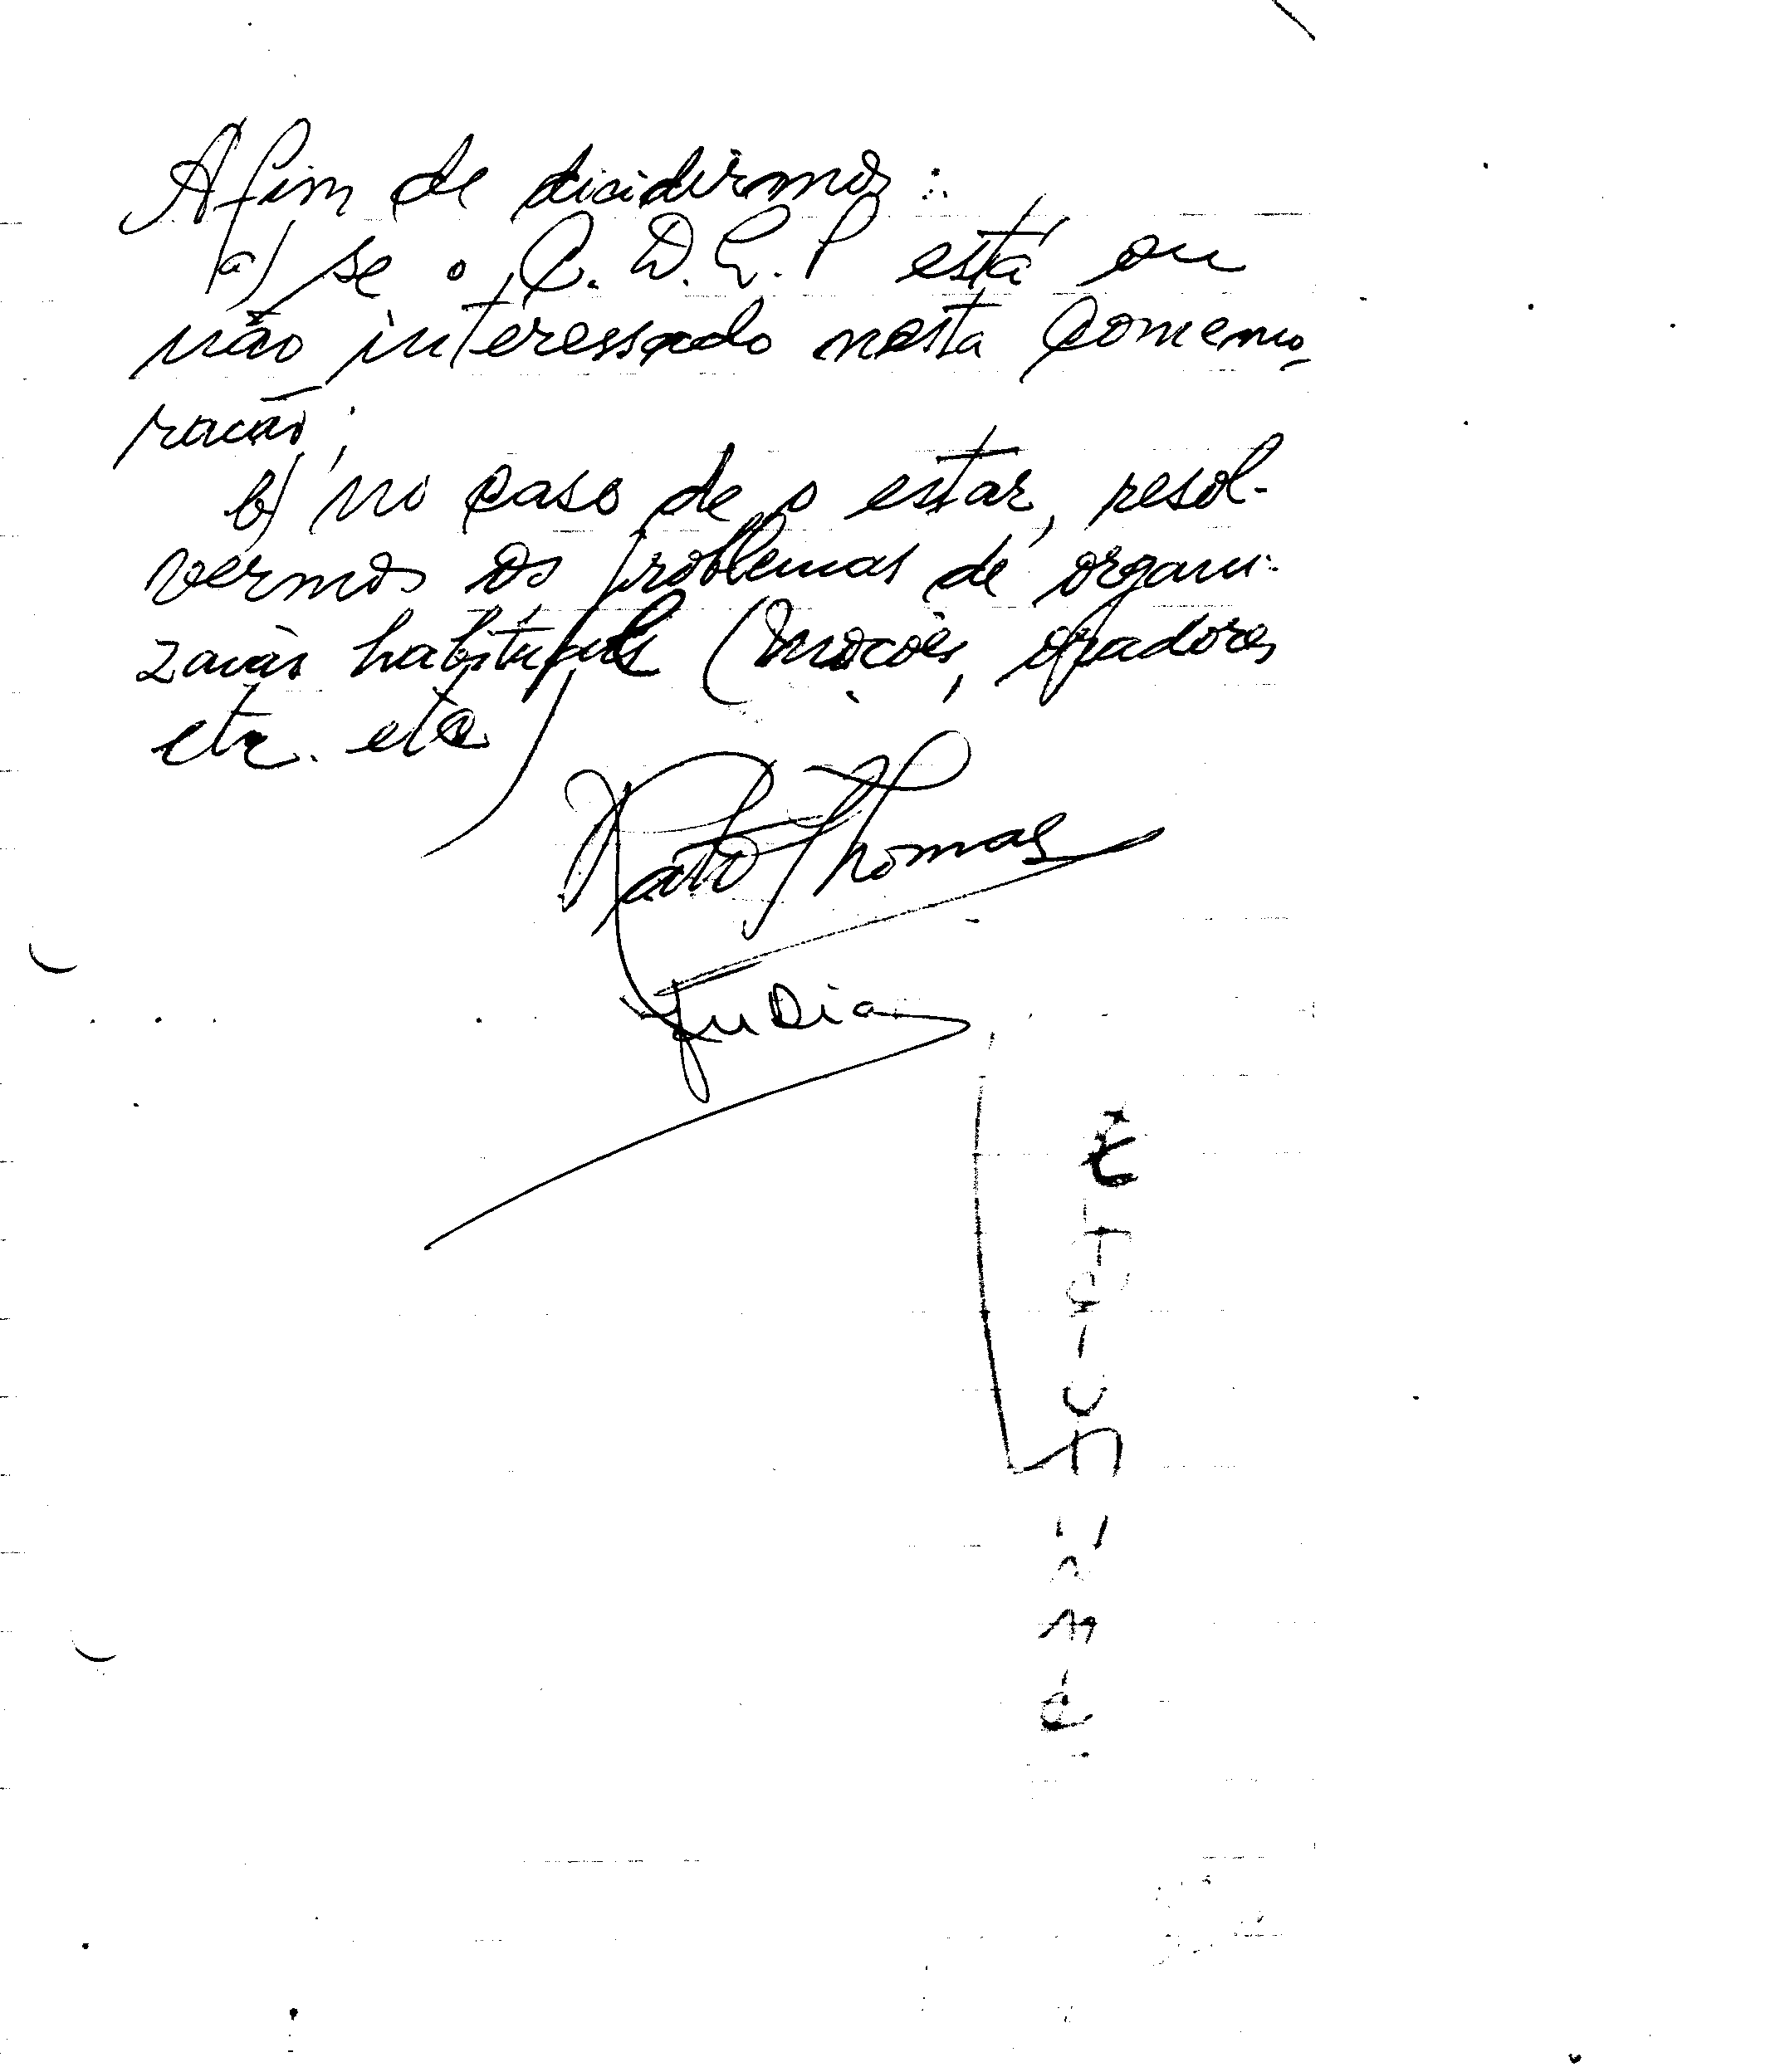 Afim de dicidirmos:
a) se o C.D.L.P está ou
não interessado nesta Comemo-
ração;
b) no caso de o estar, resol-
vermos os problemas de organi-
zação habituais (moções, oradores
etc. etc)
Thomas